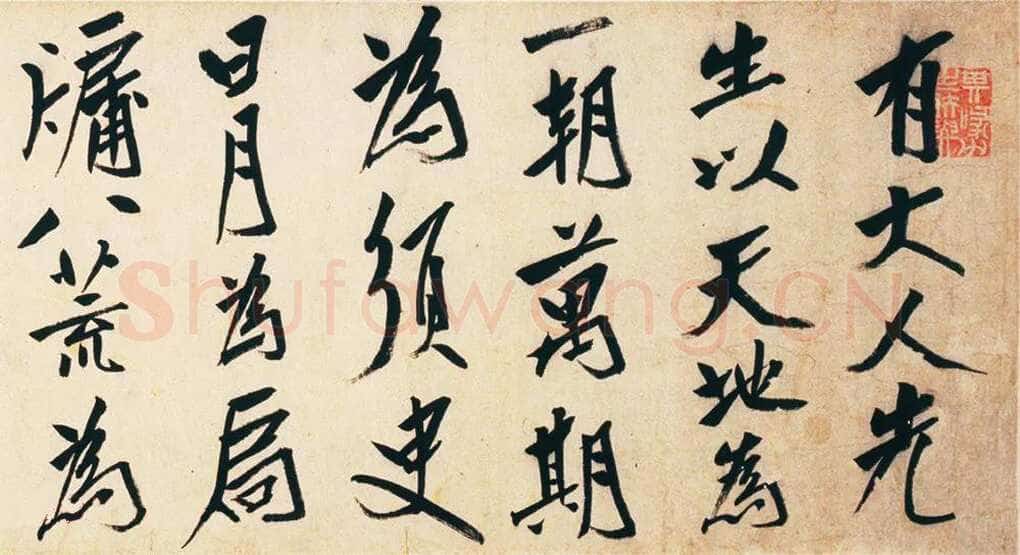 有大人先
生以天地為
一朝萬期
為須臾
日月為扃
牖八荒為
Shufawang.CN